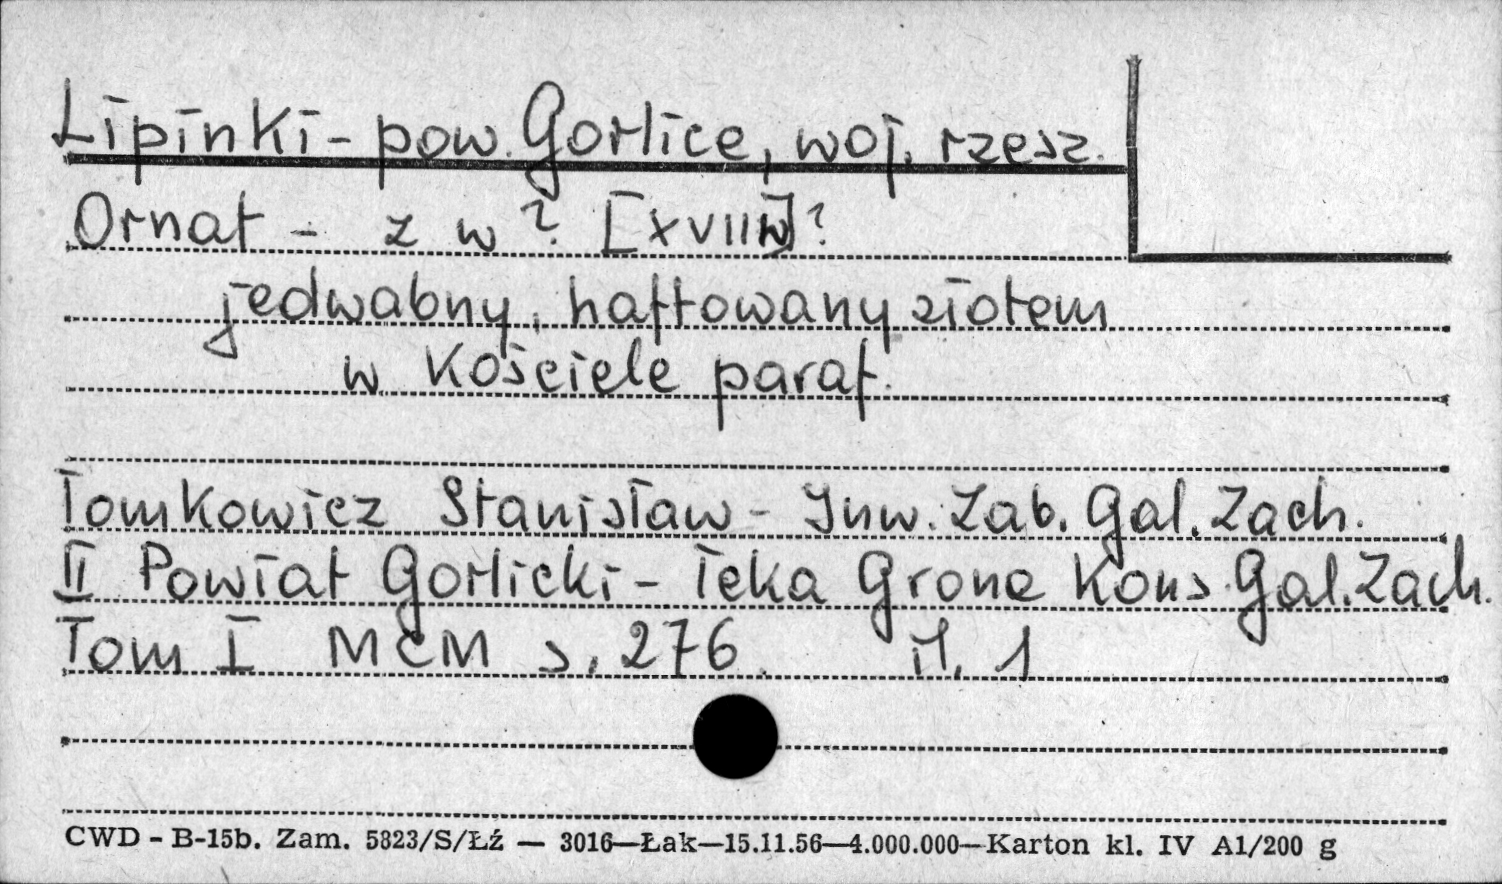 Lipinki - pow. Gorlice, woj. rzesz.
Ornat - z w ? [XVII w]?
jedwabny, haftowany złotem
w Kościele paraf.
Tomkowicz Stanisław - Inw. Zab. Gal. Zach.
II Powiat Gorlicki - Teka Grona Kons. Gal. Zach.
Tom I MCM s. 276. il. 1
CWD - B-15b. Zam. 5823/S/Łź — 3016—Łak—15.11.56—4.000.000—Karton kl. IV A1/200 g